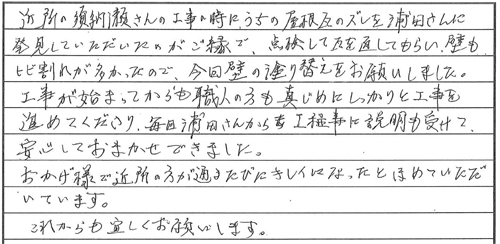 近所の須納瀬さんの工事の時にうちの屋根瓦のズレを浦田さんに
発見していただいたのがご縁で、点検して瓦を直してもらい、壁も
ヒビ割れが多かったので、今回壁の塗り替えをお願いしました。
工事が始まってからも職人の方も真じめにしっかりと工事を
進めてくださり、毎日浦田さんからも工程事に説明も受けて、
安心しておまかせできました。
おかげ様で近所の方が通るたびにキレイになったとほめていただ
いています。
これからも宜しくお願いします。